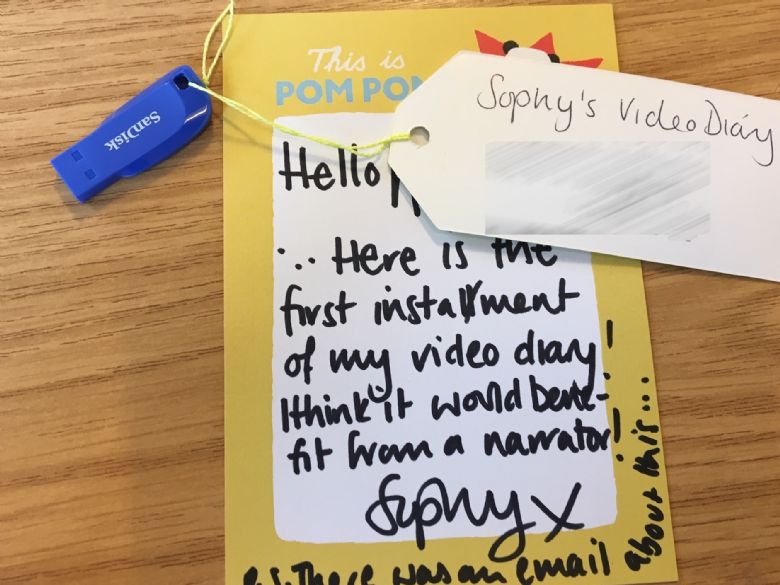 This is
POM PON
SanDisk
Sophy's Video Diary
Hello
... Here is the
first installment
of my video diary!
I think it would bene-
fit from a narrator!
Sophy X
P.S. There was an email
about this...